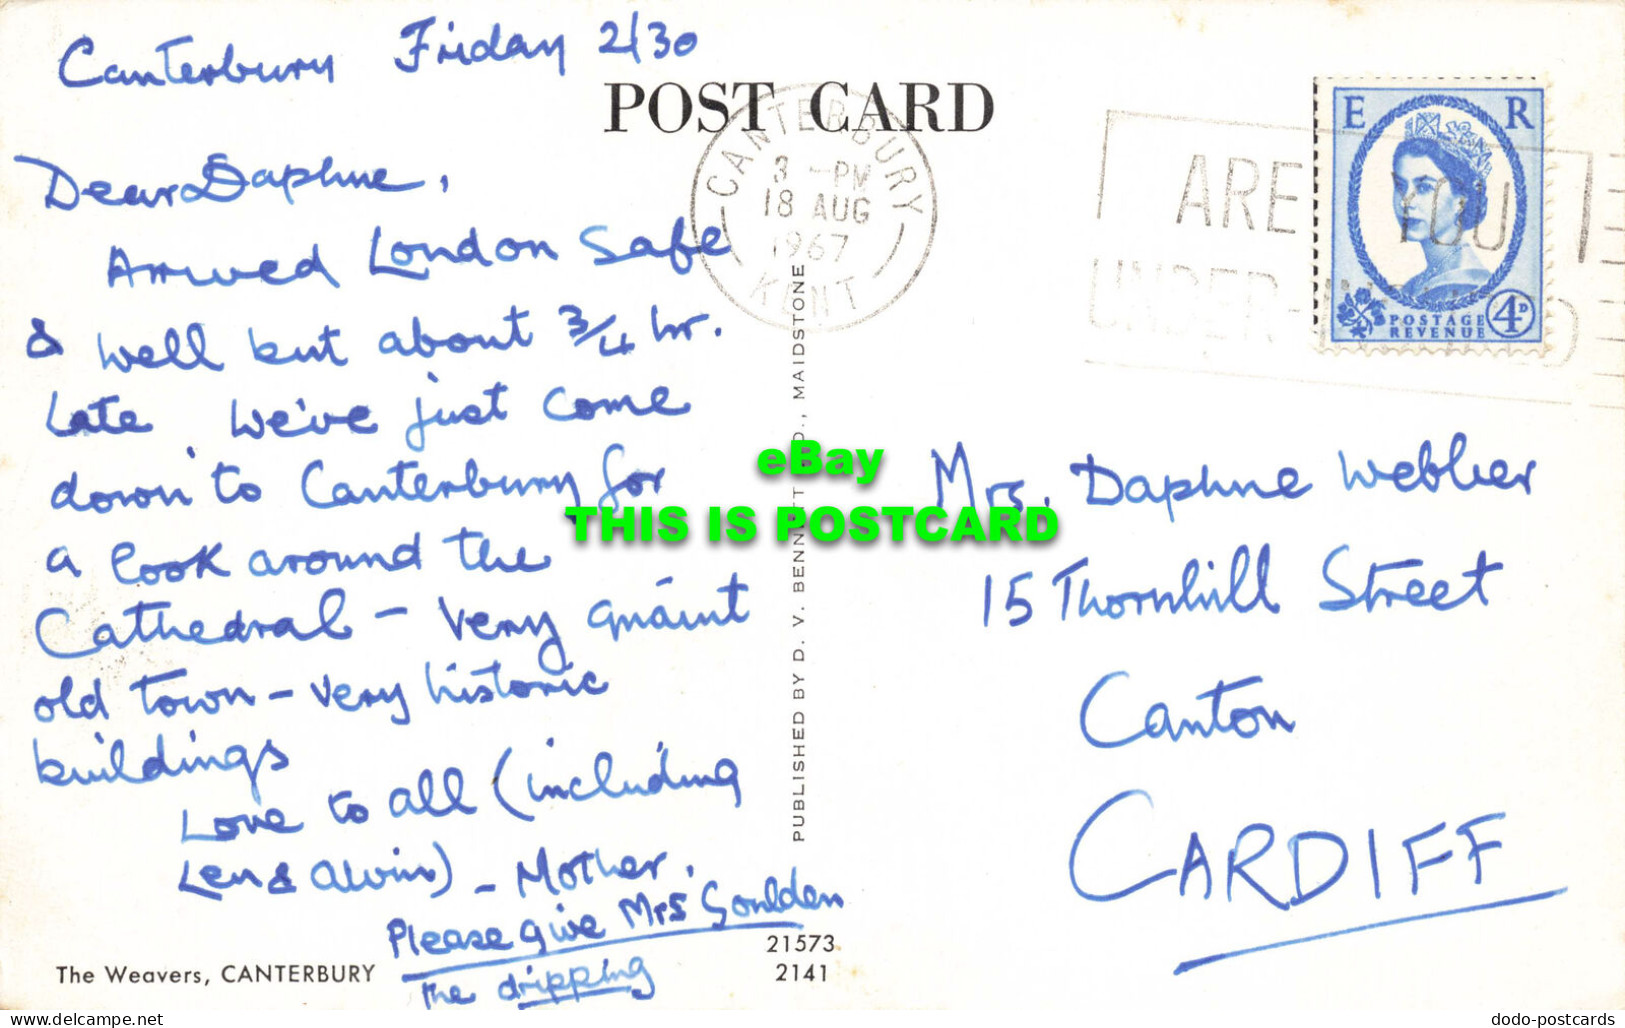 Canterbury Friday 2/30
POST CARD
Dear Daphne,
Arrived London Safe
& well but about 3/4 hr.
late. We've just come
down to Canterbury for
a look around the
Cathedral - very quaint
old town - very historic
buildings
Love to all (including
Len & Alvin) - Mother.
Please give Mrs Goulden
The dripping
The Weavers, CANTERBURY
21573
2141
PUBLISHED BY D. V. BENNETT LTD., MAIDSTONE
CANTERBURY
3 - PM
18 AUG
1967
KENT
ARE YOU
UNDER-
E R
POSTAGE
REVENUE
4D
Mrs. Daphne Webber
15 Thornhill Street
Canton
CARDIFF
eBay
THIS IS POSTCARD
delcampe.net
dodo-postcards